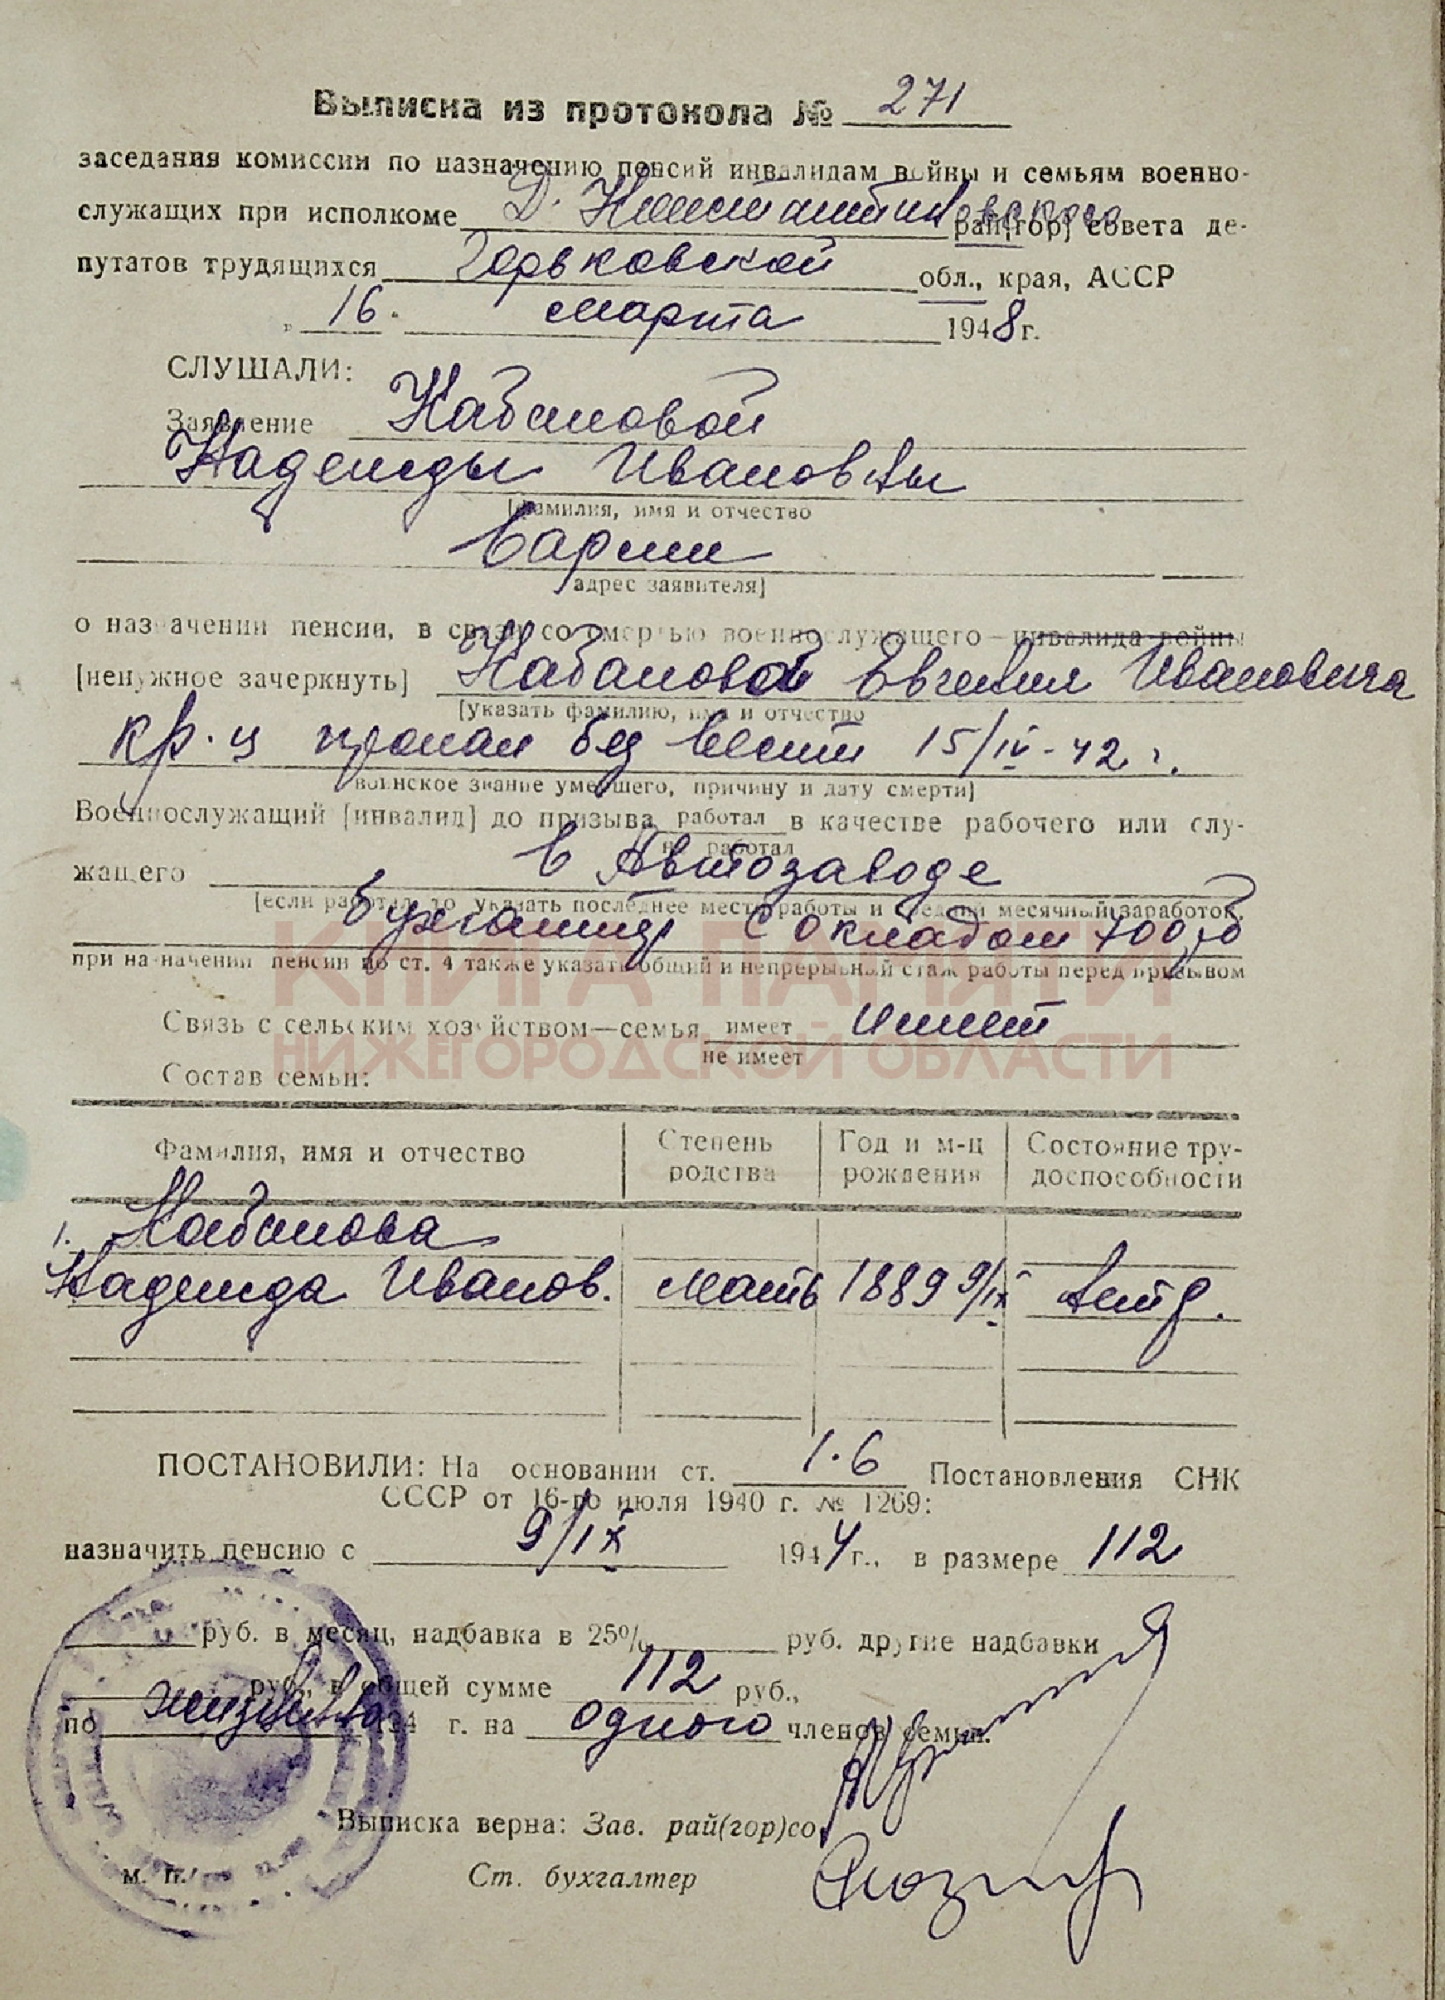 Выписка из протокола № 271
заседания комиссии по назначению пенсий инвалидам войны и семьям военно-
служащих при исполкоме Д. Константиновского рай[гор] совета де-
путатов трудящихся Горьковской обл., края, АССР
„ 16. марта 1948 г.
СЛУШАЛИ:
Заявление Кабановой
Надежды Ивановны
[фамилия, имя и отчество
адрес заявителя]
о назначении пенсии, в связи со смертью военнослужащего—инвалида войны
[ненужное зачеркнуть] Кабанова Евгения Ивановича
[указать фамилию, имя и отчество
кр-ц пропал без вести 15/IV-42 г.
воинское звание умершего, причину и дату смерти]
Военнослужащий [инвалид] до призыва работал в качестве рабочего или слу-
не работал
жащего в Автозаводе
[если работал, то указать последнее место работы и средний месячный заработок,
бухгалтер с окладом 700 р
при назначении пенсии по ст. 4 также указать общий и непрерывный стаж работы перед призывом
КНИГА ПАМЯТИ
Связь с сельским хозяйством—семья имеет имеет
не имеет
НИЖЕГОРОДСКОЙ ОБЛАСТИ
Состав семьи:
Фамилия, имя и отчество Степень родства Год и м-ц рождения Состояние тру-
доспособности
1. Кабанова
Надежда Иванов. мать 1889 9/IX нетр.
ПОСТАНОВИЛИ: На основании ст. 1.6 Постановления СНК
СССР от 16-го июля 1940 г. № 1269:
назначить пенсию с 9/IX 1944 г., в размере 112
руб. в месяц, надбавка в 25% руб. другие надбавки
руб., в общей сумме 112 руб.,
по жизненно 194 г. на одного членов семьи.
Выписка верна: Зав. рай(гор)со
м. п. Ст. бухгалтер